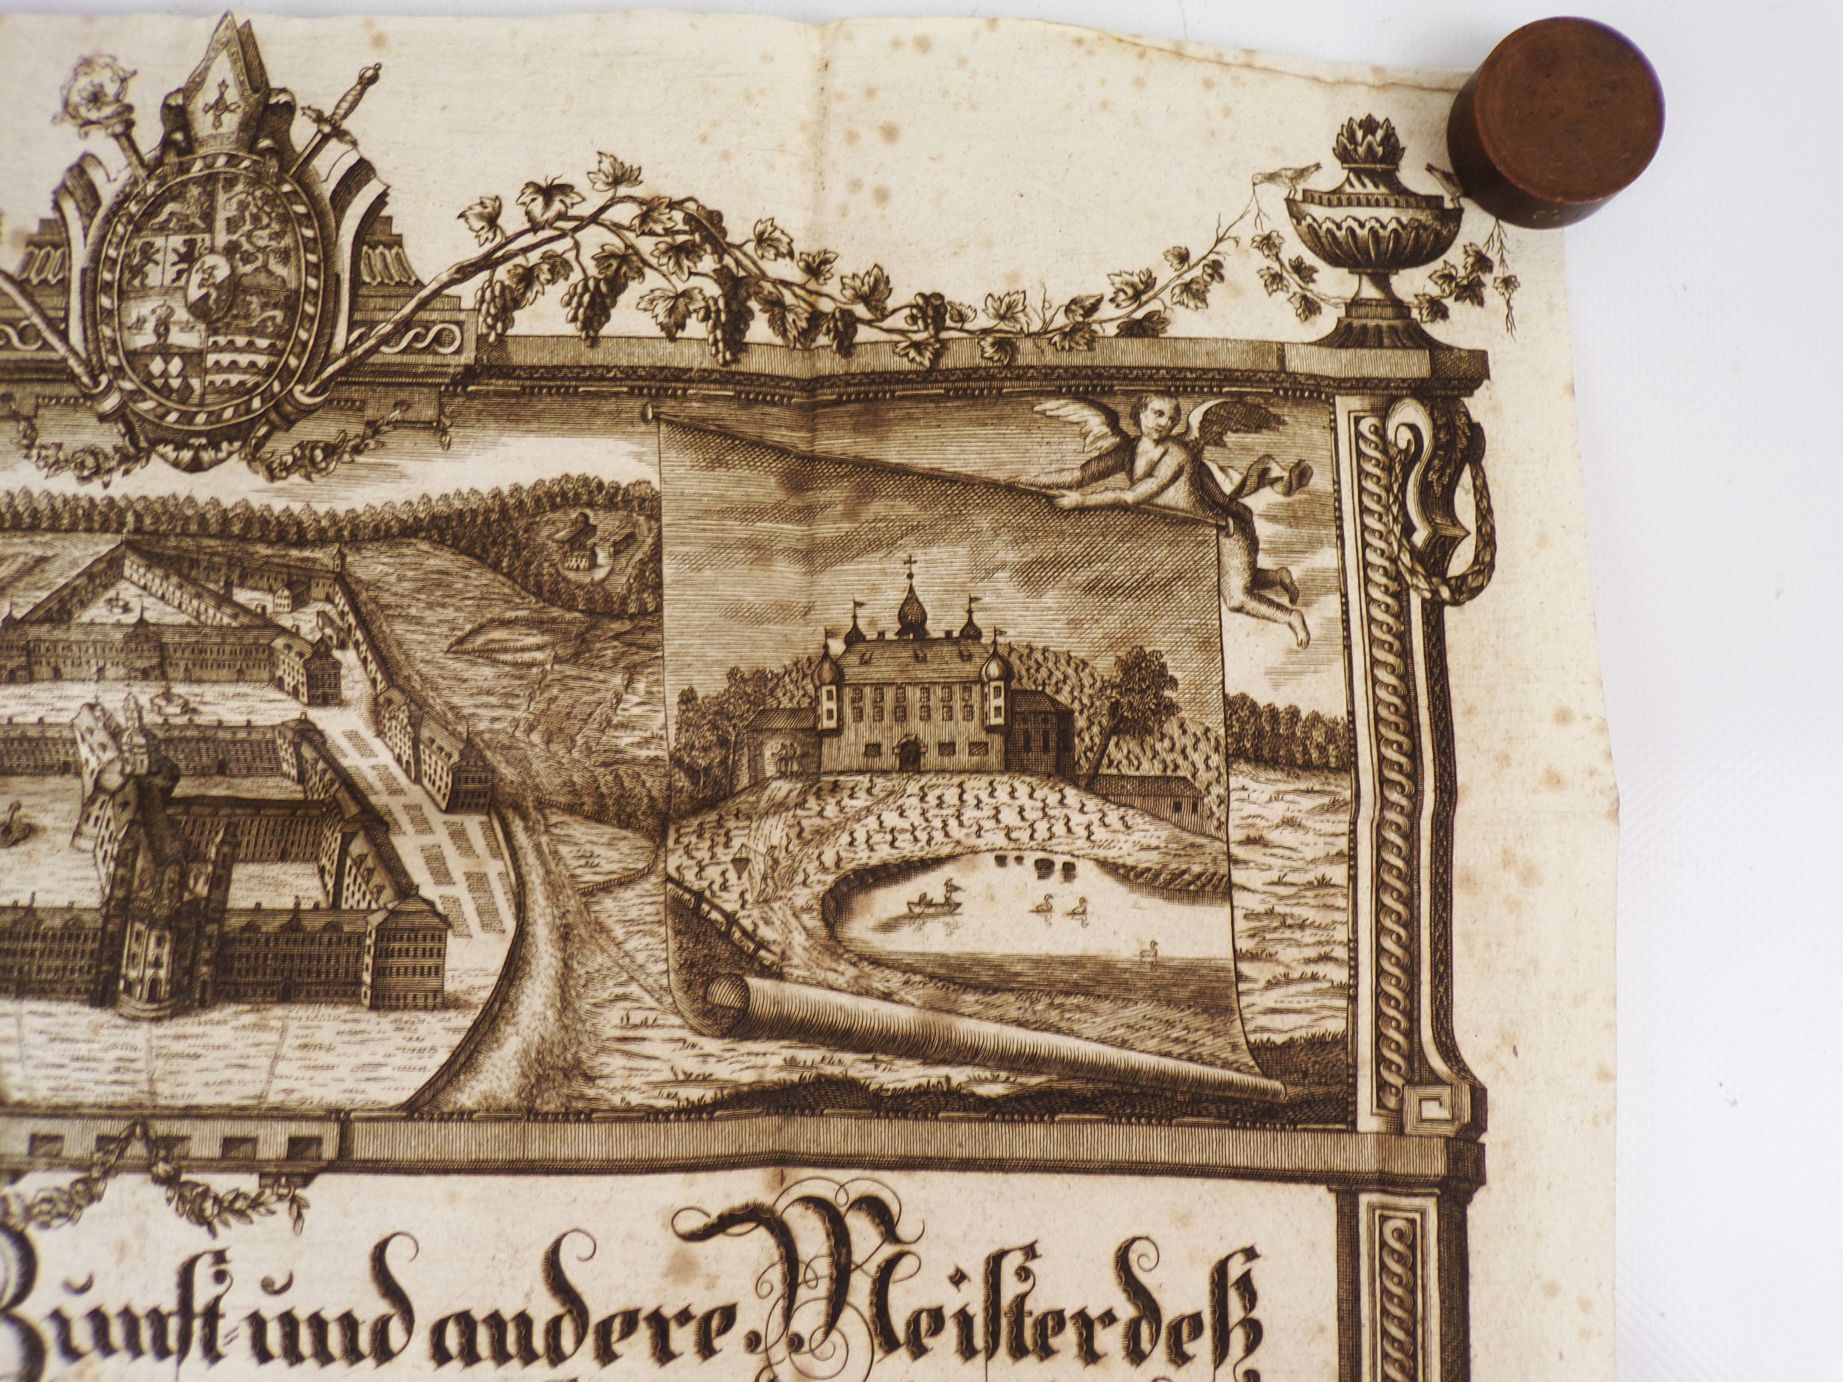 Zunft- und andere Meister deß